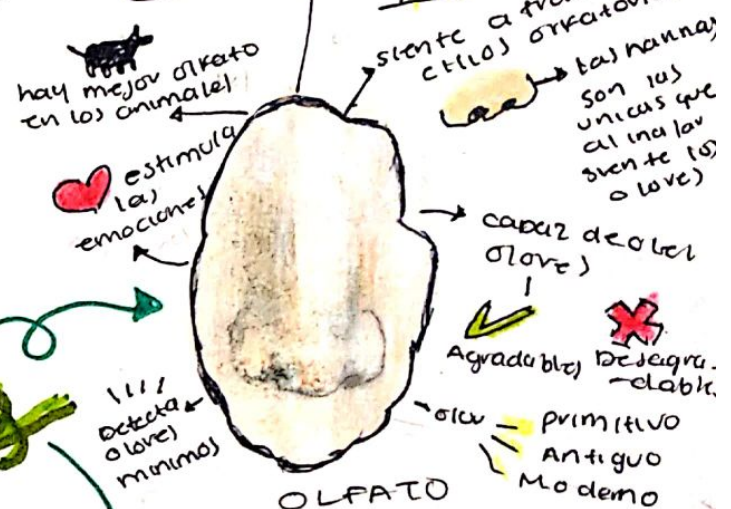 hay mejor olfato
en los animales
siente a
cilios olfator
las narinas
son las
unicas que
al inalar
siente los
olores
estimula
las
emociones
capaz de oler
olores
Agradables
Desagra-
-dable
Detecta
olores
minimos
olor
primitivo
Antiguo
Moderno
OLFATO